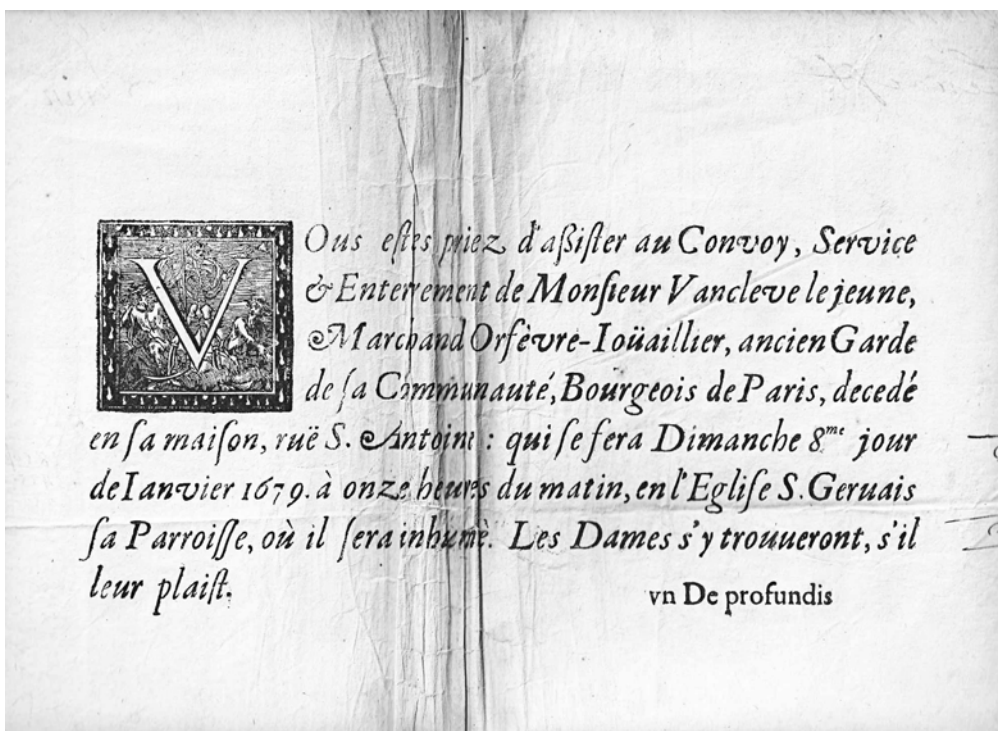 VOus estes priez d'assister au Convoy, Service
& Enterrement de Monsieur Vancleve le jeune,
Marchand Orfèvre-Ioüaillier, ancien Garde
de sa Communauté, Bourgeois de Paris, decedé
en sa maison, ruë S. Antoine : qui se fera Dimanche 8me jour
de Ianvier 1679. à onze heures du matin, en l'Eglise S. Geruais
sa Parroisse, où il sera inhumè. Les Dames s'y trouueront, s'il
leur plaist.
vn De profundis